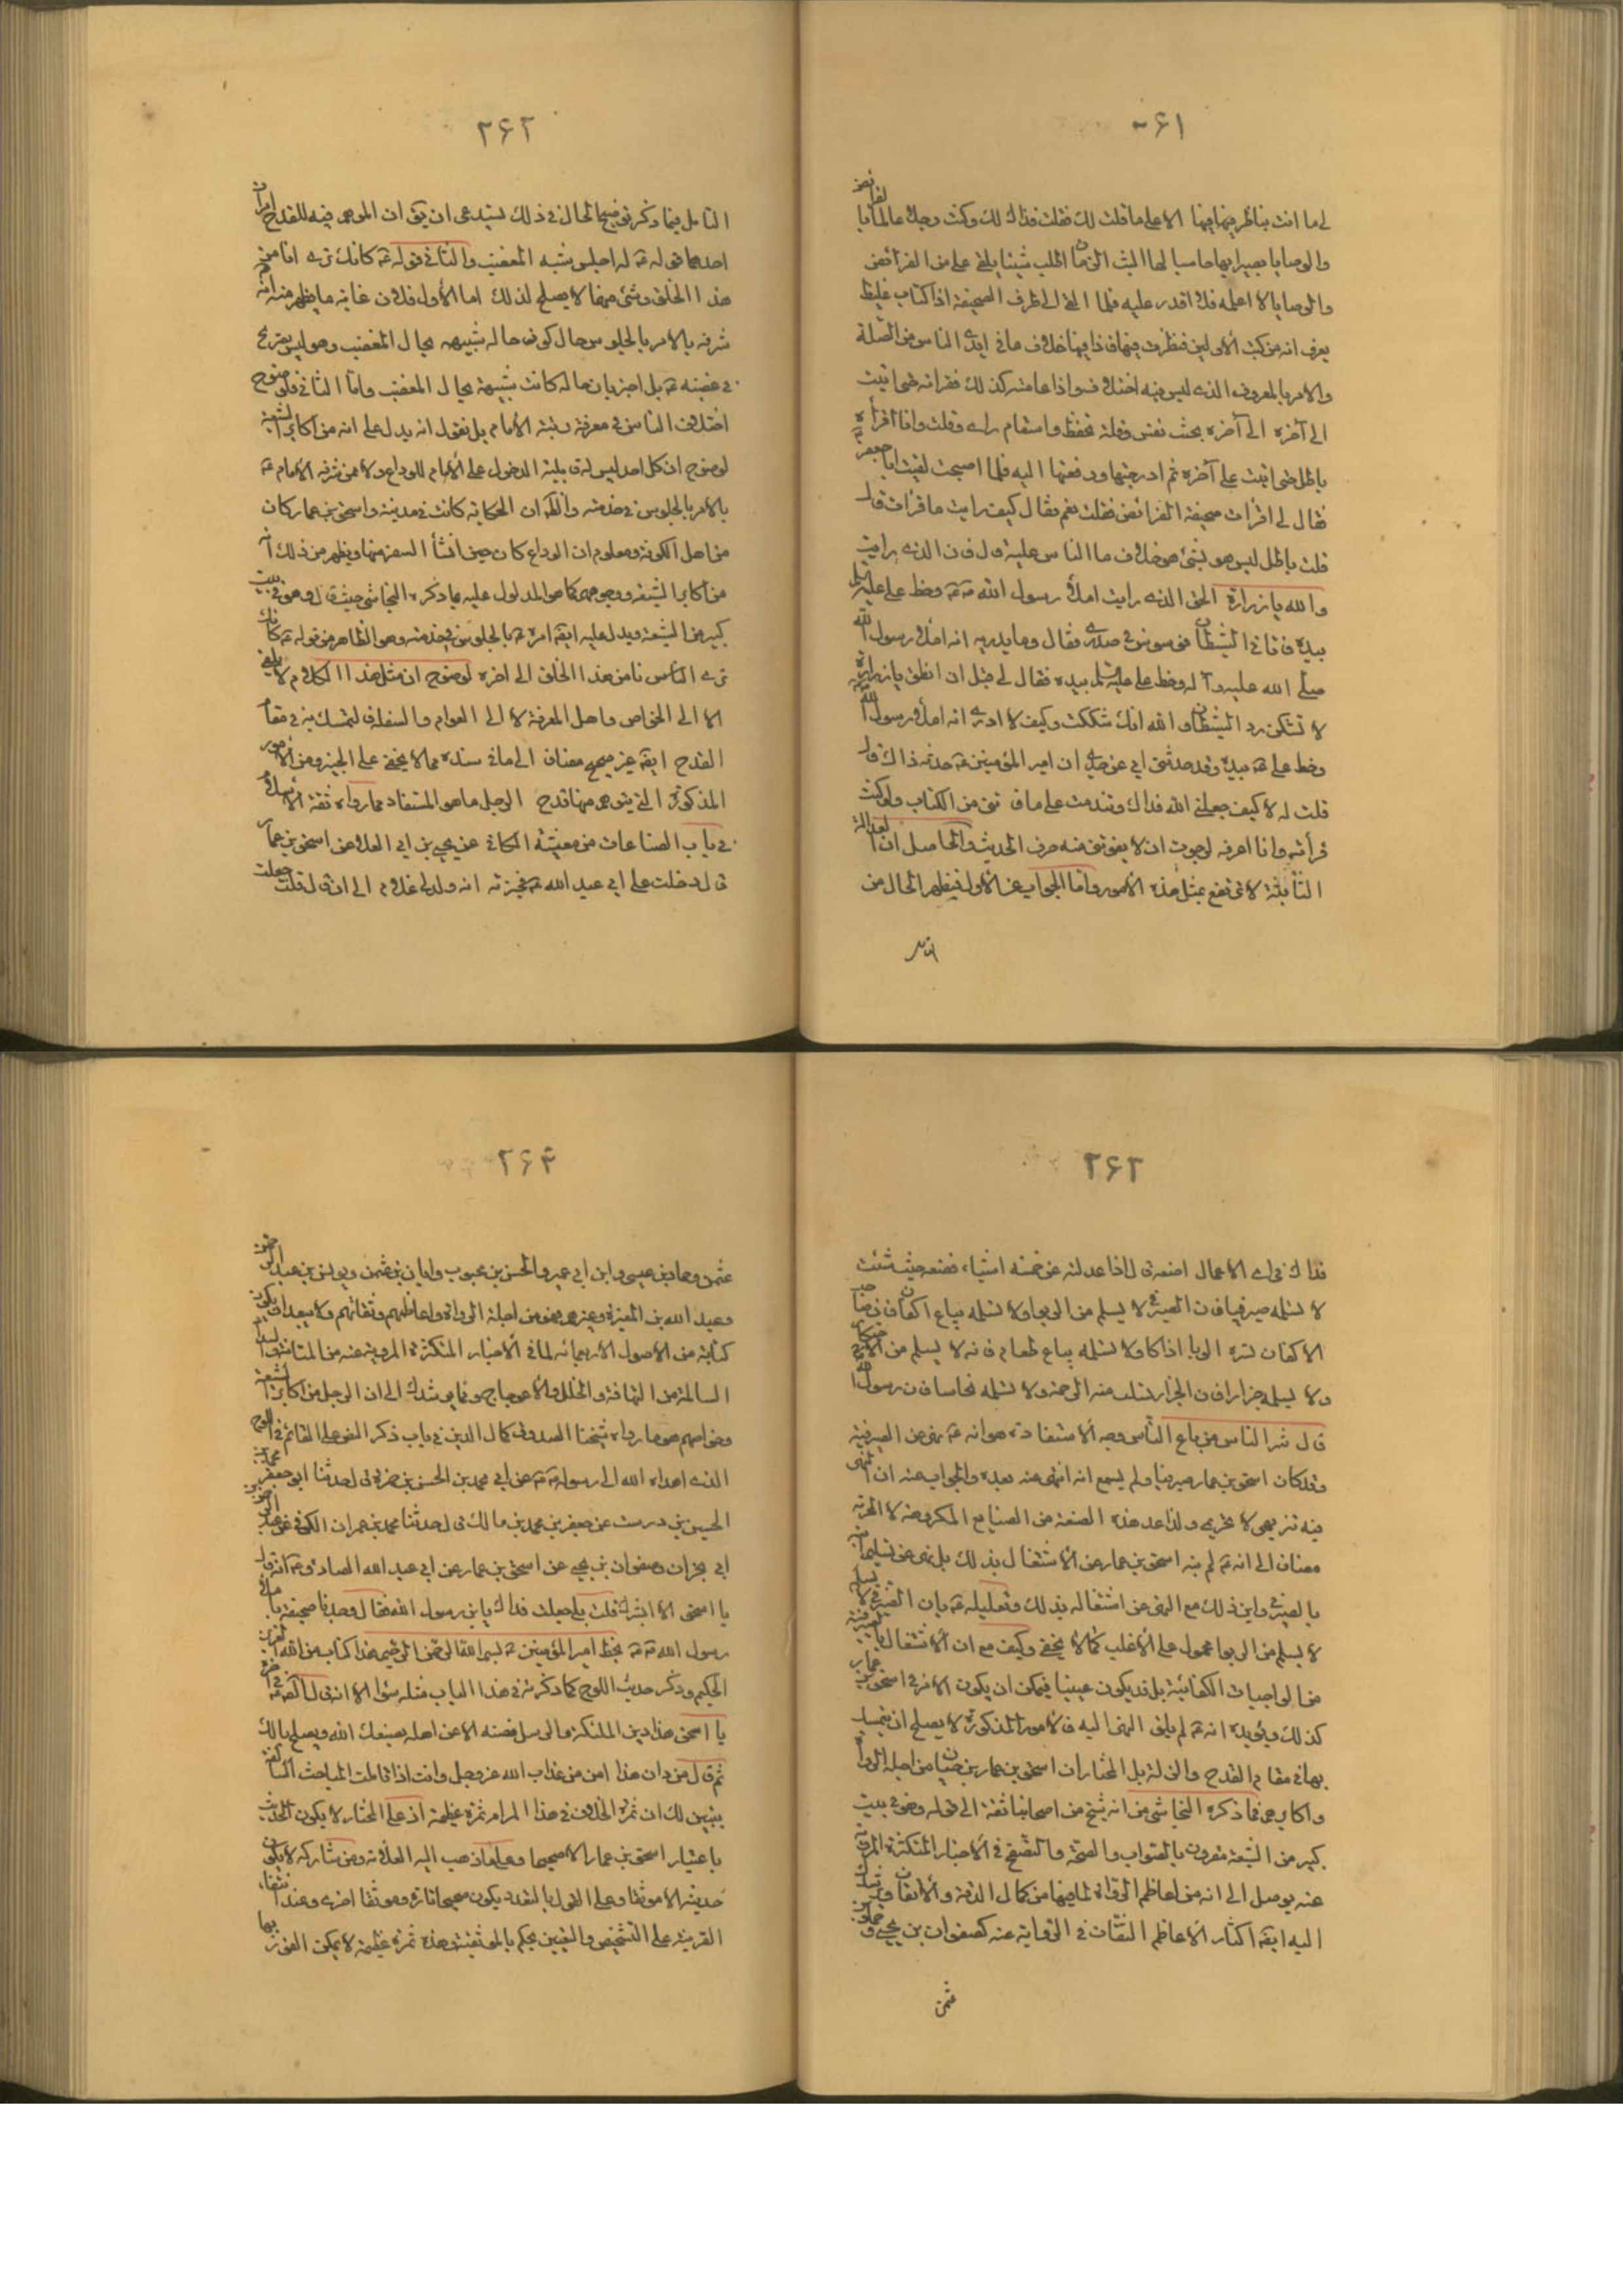 ۲۶۱
لي ما انت بناظر فيها فيها الا على ما قلت لك فقلت فذاك لك وكنت رجلا عالما بالفرائض
والوصايا بصيرا بها حاسبا لها البث الزمان اطلب شيئا يلقى علي من الفرائض
والوصايا لا اعلمه فلا اقدر عليه فلما القى الي طرف الصحيفة اذا كتاب غليظ
يعرف انه من كتب الأولين فنظرت فيها فاذا فيها خلاف ما في ايدي الناس من الصلة
والامر بالمعروف الذي ليس فيه اختلاف واذا عامته كذلك فقرأته حتى اتيت
الى آخره بخبث نفس وقلة تحفظ واسقام رأي وقلت وانا أقرأه
باطل حتى اتيت على آخره ثم ادرجتها ودفعتها اليه فلما اصبحت لقيت ابا جعفر ع
فقال لي اقرات صحيفة الفرائض فقلت نعم فقال كيف رايت ما قرات قال
قلت باطل ليس هو بشئ هو خلاف ما الناس عليه قال فان الذي رايت
والله يا زرارة الحق الذي رايت املاء رسول الله ص وخط علي عليه السلم
بيده فاتاني الشيطان فوسوس في صدري فقال وما يدريه انه املاء رسول الله
صلى الله عليه وآله وخط علي عليه السلم بيده فقال لي قبل ان انطق يا زرارة
لا تشكن ود الشيطان والله انك شككت وكيف لا ادري انه املاء رسول الله
وخط علي ع بيده وقد حدثني ابي عن جدي ان امير المؤمنين ع حدثه ذاك قال
قلت له لا كيف جعلني الله فداك وتندمت على ما فاتني من الكتاب ولو كنت
قرأته وانا اعرفه لرجوت ان لا يفوتني منه حرف الحديث والحاصل ان العدالة
الثابتة لا ترتفع بمثل هذه الأمور واما الجواب عن الأول فيظهر الحال من
التأمل
۲۶۲
التامل فيما ذكر توضيح الحال في ذلك يستدعي ان يقال ان الموهم فيه للقدح امران
احدهما قوله ع له اجلس شبه المغضب والثاني قوله ع كانك ترى انا من
هذا الخلق وشئ منهما لا يصلح لذلك اما الأول فلان غاية ما يظهر منه انه
شرفه بالامر بالجلوس حال كون حاله شبيهه بحال المغضب وهو ليس بصريح
في غضبه ع بل اخبر بان حاله كانت شبيهة بحال المغضب واما الثاني فلوضوح
اختلاف الناس في معرفة رتبة الأمام بل نقول انه يدل على انه من اكابر الشيعة
لوضوح ان كل احد ليس له قابلية الدخول على الأمام للوداع ولا ممن شرفه الأمام ع
بالامر بالجلوس في خدمته والظ ان الحكاية كانت في مدينة واسحق بن عمار كان
من اهل الكوفة ومعلوم ان الوداع كان حين انشأ السفر منها ويظهر من ذلك انه
من اكابر الشيعة ووجوههم كما هو المدلول عليه بما ذكره النجاشي حيث قال وهو في بيت
كبير من الشيعة ويدل عليه ايضا امره ع بالجلوس في خدمته وهو الظاهر من قوله ع كانك
ترى الناس نا من هذا الخلق الى اخره لوضوح ان مثل هذا الكلام لا يلقى
الا الى الخواص واهل المعرفة لا الى العوام والسفلة فالتمسك به في مقام
القدح ايضا غير صحيح مضافا الى ما في سنده مما لا يخفى على الخبير ومن الأمور
المذكورة التي يتوهم منها قدح الرجل ما هو المستفاد مما رواه ثقة الأسلام
في باب الصناعات من معيشة الكافي عن يحيى بن ابي العلاء عن اسحق بن عمار
قال دخلت على ابي عبد الله ع فخبرته انه ولد لي غلام الى ان قال قلت جعلت
۲۶۳
فداك في اي الاعمال اضعه قال اذا عدلته عن خمسة اشياء فضعه حيث شئت
لا تسلمه صيرفيا فان الصيرفي لا يسلم من الربوا ولا تسلمه بياع اكفان فان صاحب
الاكفان يسره الوبا اذا كان ولا تسلمه بياع طعام فانه لا يسلم من الاحتكار
ولا تسلمه جزارا فان الجزار تسلب منه الرحمة ولا تسلمه نخاسا فان رسول الله
قال شر الناس من باع الناس وجه الأستفادة هو انه ع نهى عن الصيرفية
وقد كان اسحق بن عمار صيرفيا ولم يسمع انه انتهى عنه بعده والجواب عنه ان النهي
فيه تنزيهي لا تحريمي ولذا عد هذه الصنعة من الصنايع المكروهة لا المحرمة
مضافا الى انه ع لم ينه اسحق بن عمار عن الأشتغال بذلك بل نهى عن تسليم ابنه
بالصيرفي واين ذلك مع النهي عن اشتغاله بذلك وتعليله ع بان الصيرفي لا يسلم
لا يسلم من الربوا محمول على الأغلب كما لا يخفى وكيف مع ان الأشتغال بالصيرفية
من الواجبات الكفائية بل قد يكون عينيا فيمكن ان يكون الأمر في اسحق بن عمار
كذلك ويؤيده انه ع لم يلق النهي اليه فالأمور المذكورة لا يصلح ان يتمسك
بها في مقام القدح والتزلزل بل المختار ان اسحق بن عمار بن حيان من اجلة الرواة
واكابرهم فما ذكره النجاشي من انه شيخ من اصحابنا ثقة الى قوله وهو في بيت
كبير من الشيعة مقرون بالصواب والصحة والتصفح في الأخبار المتكثرة المروية
عنه يوصل الى انه من اعاظم الرواة لما فيها من كمال الدقة والأتقان
اليه ايضا اكثار الأعاظم الثقات في الرواية عنه كصفوان بن يحيى وحماد بن
عثمن
۲۶۴
عثمن وحماد بن عيسى وابن ابي عمير والحسن بن محبوب وابان بن عثمن ويونس بن عبد الرحمن
وعبد الله بن المغيرة وغيرهم من اجلة الرواة واعاظمهم وثقاتهم ولا يبعد ان يكون
كتابه من الاصول الأربعمائة لما في الأخبار المتكثرة المروية عنه من المتانة والسداد
السالمة من التهافة والخلل والأعوجاج ومما يرشدك الى ان الرجل من اكابر الشيعة
وخواصهم هو ما رواه شيخنا الصدوق في كمال الدين في باب ذكر النص على القائم في اللوح
الذي اهداه الله الى رسوله ص عن ابي محمد بن الحسن بن حمزة قال حدثنا ابو جعفر محمد بن
الحسين بن درست عن جعفر بن محمد بن مالك قال حدثنا محمد بن عمران الكوفي عن عبد الرحمن
ابي نجران وصفوان بن يحيى عن اسحق بن عمار عن ابي عبد الله الصادق ع انه قال
يا اسحق الا ابشرك قلت بلى جعلت فداك يابن رسول الله فقال وجدنا صحيفة باملاء
رسول الله ص بخط امير المؤمنين ع بسم الله الرحمن الرحيم هذا كتاب من الله العزيز
الحكيم وذكر حديث اللوح كما ذكرته في هذا الباب مثله سواء الا انه قال في آخره
يا اسحق هذا دين الملئكة والرسل فصنه الا عن اهله يصنعك الله ويصلح بالك
ثم قال من دان هذا امن من عذاب الله عز وجل وانت اذا تاملت المباحث السالفة
يتبين لك ان ثمرة الخلاف في هذا المرام ثمرة عظيمة اذ على المختار لا يكون الحديث
باعتبار اسحق بن عمار الا صحيحا وعلى ما ذهب اليه العلامة ومن شاركه لا يكون
حديثه الا موثقا وعلى القول بالتعدد يكون صحيحا تارة وموثقا اخرى وعند انتفاء
القرينة على التشخيص والتعيين يحكم بالموثقية وهذه ثمرة عظيمة لا يمكن الفوز بها